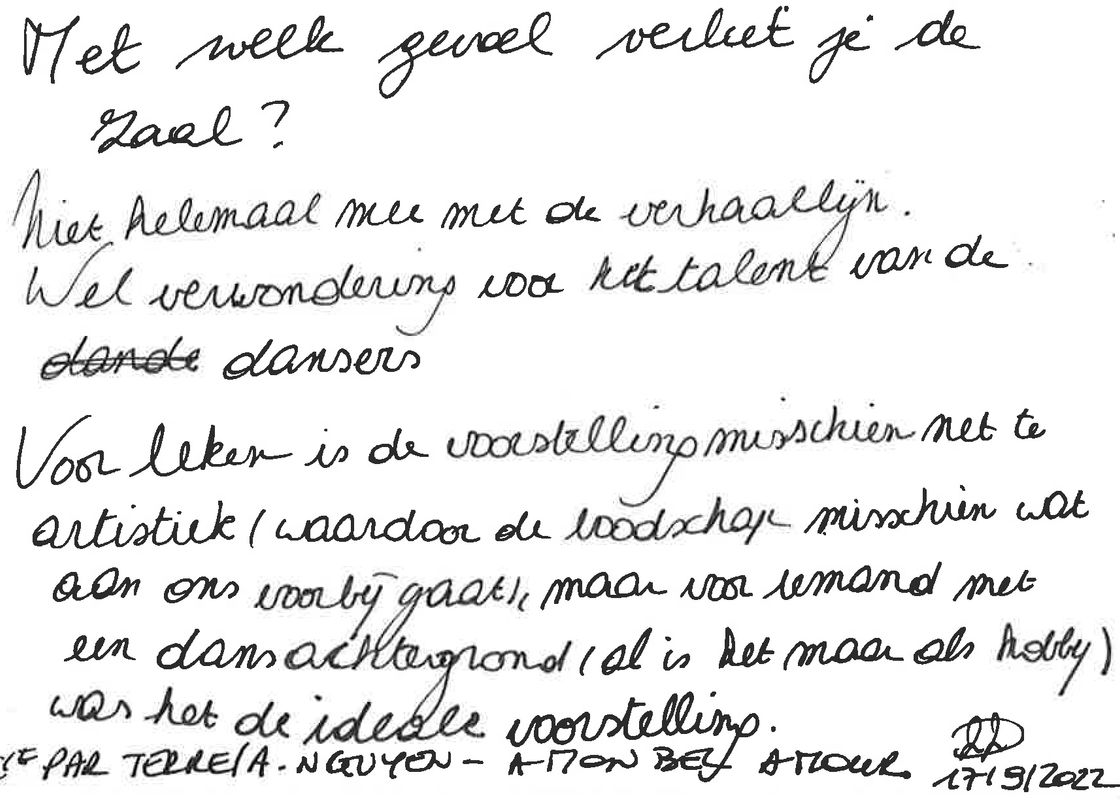 Met welk gevoel verliet je de
zaal?
Niet helemaal mee met de verhaallijn.
Wel verwondering voor het talent van de
dande dansers
Voor leken is de voorstelling misschien net te
artistiek (waardoor de boodschap misschien wat
aan ons voorbij gaat), maar voor iemand met
een dansachtergrond (al is het maar als hobby)
was het de ideale voorstelling.
Cie PAR TERRE/A. NGUYEN - A MON BEL AMOUR
17/9/2022